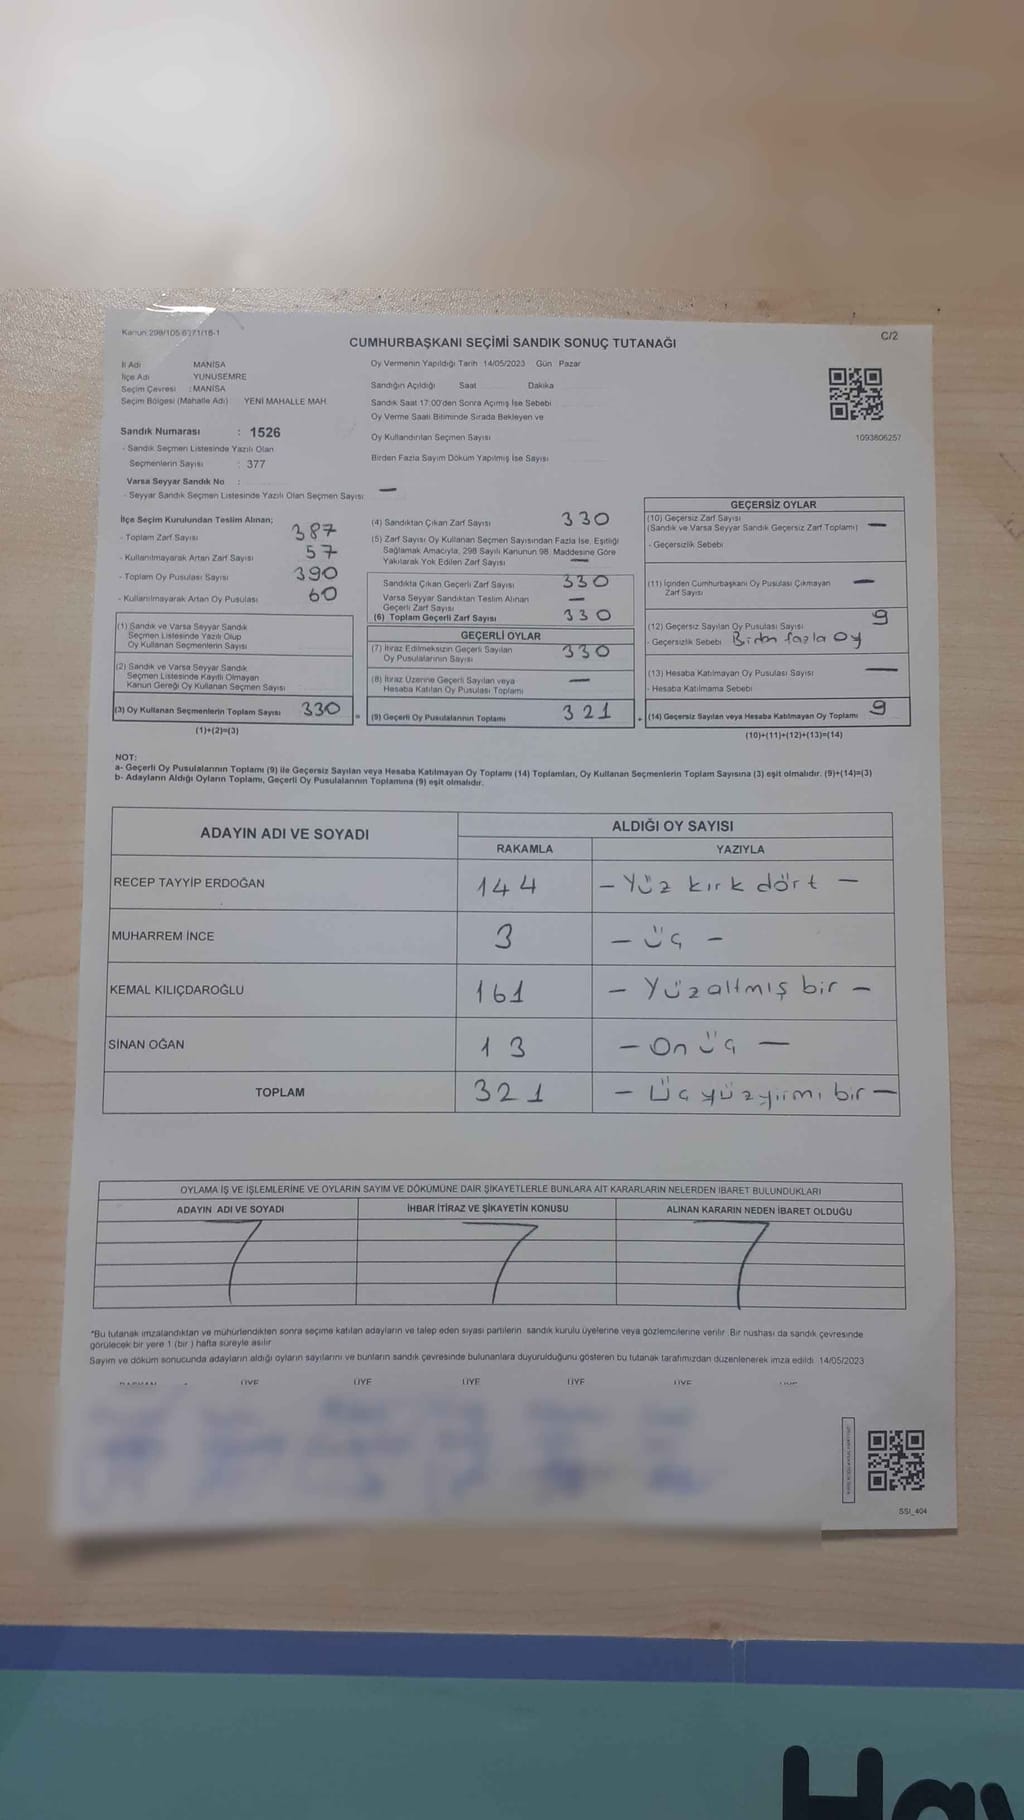 Kanun:298/105 6271/16-1
C/2
CUMHURBAŞKANI SEÇİMİ SANDIK SONUÇ TUTANAĞI
İl Adı MANİSA
İlçe Adı YUNUSEMRE
Seçim Çevresi : MANİSA
Seçim Bölgesi (Mahalle Adı) YENİ MAHALLE MAH.
Oy Vermenin Yapıldığı Tarih 14/05/2023 Gün Pazar
Sandığın Açıldığı Saat Dakika
Sandık Saat 17:00'den Sonra Açımış İse Sebebi
Oy Verme Saati Bitiminde Sırada Bekleyen ve
Oy Kullandırılan Seçmen Sayısı
Birden Fazla Sayım Döküm Yapılmış İse Sayısı
1093806257
Sandık Numarası : 1526
- Sandık Seçmen Listesinde Yazılı Olan
Seçmenlerin Sayısı : 377
Varsa Seyyar Sandık No :
- Seyyar Sandık Seçmen Listesinde Yazılı Olan Seçmen Sayısı —
İlçe Seçim Kurulundan Teslim Alınan;
- Toplam Zarf Sayısı 387
- Kullanılmayarak Artan Zarf Sayısı 57
- Toplam Oy Pusulası Sayısı 390
- Kullanılmayarak Artan Oy Pusulası 60
(1) Sandık ve Varsa Seyyar Sandık
Seçmen Listesinde Yazılı Olup
Oy Kullanan Seçmenlerin Sayısı
(2) Sandık ve Varsa Seyyar Sandık
Seçmen Listesinde Kayıtlı Olmayan
Kanun Gereği Oy Kullanan Seçmen Sayısı
(3) Oy Kullanan Seçmenlerin Toplam Sayısı 330
(1)+(2)=(3)
(4) Sandıktan Çıkan Zarf Sayısı 330
(5) Zarf Sayısı Oy Kullanan Seçmen Sayısından Fazla İse, Eşitliği
Sağlamak Amacıyla, 298 Sayılı Kanunun 98. Maddesine Göre
Yakılarak Yok Edilen Zarf Sayısı —
Sandıkta Çıkan Geçerli Zarf Sayısı 330
Varsa Seyyar Sandıktan Teslim Alınan
Geçerli Zarf Sayısı —
(6) Toplam Geçerli Zarf Sayısı 330
GEÇERLİ OYLAR
(7) İtiraz Edilmeksizin Geçerli Sayılan
Oy Pusulalarının Sayısı 330
(8) İtiraz Üzerine Geçerli Sayılan veya
Hesaba Katılan Oy Pusulası Toplamı —
= (9) Geçerli Oy Pusulalarının Toplamı 321
GEÇERSİZ OYLAR
(10) Geçersiz Zarf Sayısı
(Sandık ve Varsa Seyyar Sandık Geçersiz Zarf Toplamı) —
- Geçersizlik Sebebi
(11) İçinden Cumhurbaşkanı Oy Pusulası Çıkmayan
Zarf Sayısı —
(12) Geçersiz Sayılan Oy Pusulası Sayısı 9
- Geçersizlik Sebebi Birden fazla oy
(13) Hesaba Katılmayan Oy Pusulası Sayısı —
- Hesaba Katılmama Sebebi
+ (14) Geçersiz Sayılan veya Hesaba Katılmayan Oy Toplamı 9
(10)+(11)+(12)+(13)=(14)
NOT:
a- Geçerli Oy Pusulalarının Toplamı (9) ile Geçersiz Sayılan veya Hesaba Katılmayan Oy Toplamı (14) Toplamları, Oy Kullanan Seçmenlerin Toplam Sayısına (3) eşit olmalıdır. (9)+(14)=(3)
b- Adayların Aldığı Oyların Toplamı, Geçerli Oy Pusulalarının Toplamına (9) eşit olmalıdır.
ADAYIN ADI VE SOYADI ALDIĞI OY SAYISI
RAKAMLA YAZIYLA
RECEP TAYYİP ERDOĞAN 144 – Yüz kırk dört –
MUHARREM İNCE 3 – üç –
KEMAL KILIÇDAROĞLU 161 – Yüzaltmış bir –
SİNAN OĞAN 13 – Onüç –
TOPLAM 321 – Üçyüzyiimi bir –
OYLAMA İŞ VE İŞLEMLERİNE VE OYLARIN SAYIM VE DÖKÜMÜNE DAİR ŞİKAYETLERLE BUNLARA AİT KARARLARIN NELERDEN İBARET BULUNDUKLARI
ADAYIN ADI VE SOYADI İHBAR İTİRAZ VE ŞİKAYETİN KONUSU ALINAN KARARIN NEDEN İBARET OLDUĞU
*Bu tutanak imzalandıktan ve mühürlendikten sonra seçime katılan adayların ve talep eden siyasi partilerin sandık kurulu üyelerine veya gözlemcilerine verilir. Bir nushası da sandık çevresinde
görülecek bir yere 1 (bir) hafta süreyle asılır
Sayım ve döküm sonucunda adayların aldığı oyların sayılarını ve bunların sandık çevresinde bulunanlara duyurulduğunu gösteren bu tutanak tarafımızdan düzenlenerek imza edildi. 14/05/2023
BAŞKAN ÜYE ÜYE ÜYE ÜYE ÜYE ÜYE
SSI_404
Hay